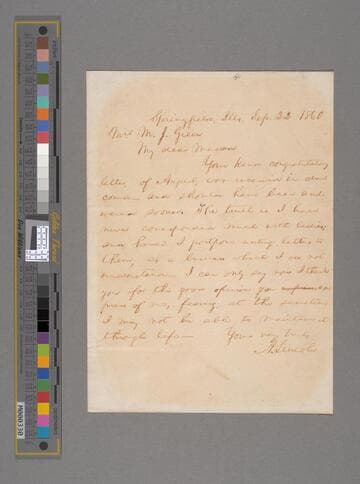 Springfield, Ills. Sep. 22 1860
Mrs M. J. Green
My dear Madam
Your kind congratulatory
letter of August, was received in due
course and should have been answered
sooner. The truth is I have
never corresponded much with ladies,
and hence I postpone writing letters to
them, as a business which I do not
understand. I can only say now I thank
you for the good opinion you express
of me, fearing, at the same time
I may not be able to maintain it
through life.
Yours very truly
A. Lincoln
M000330